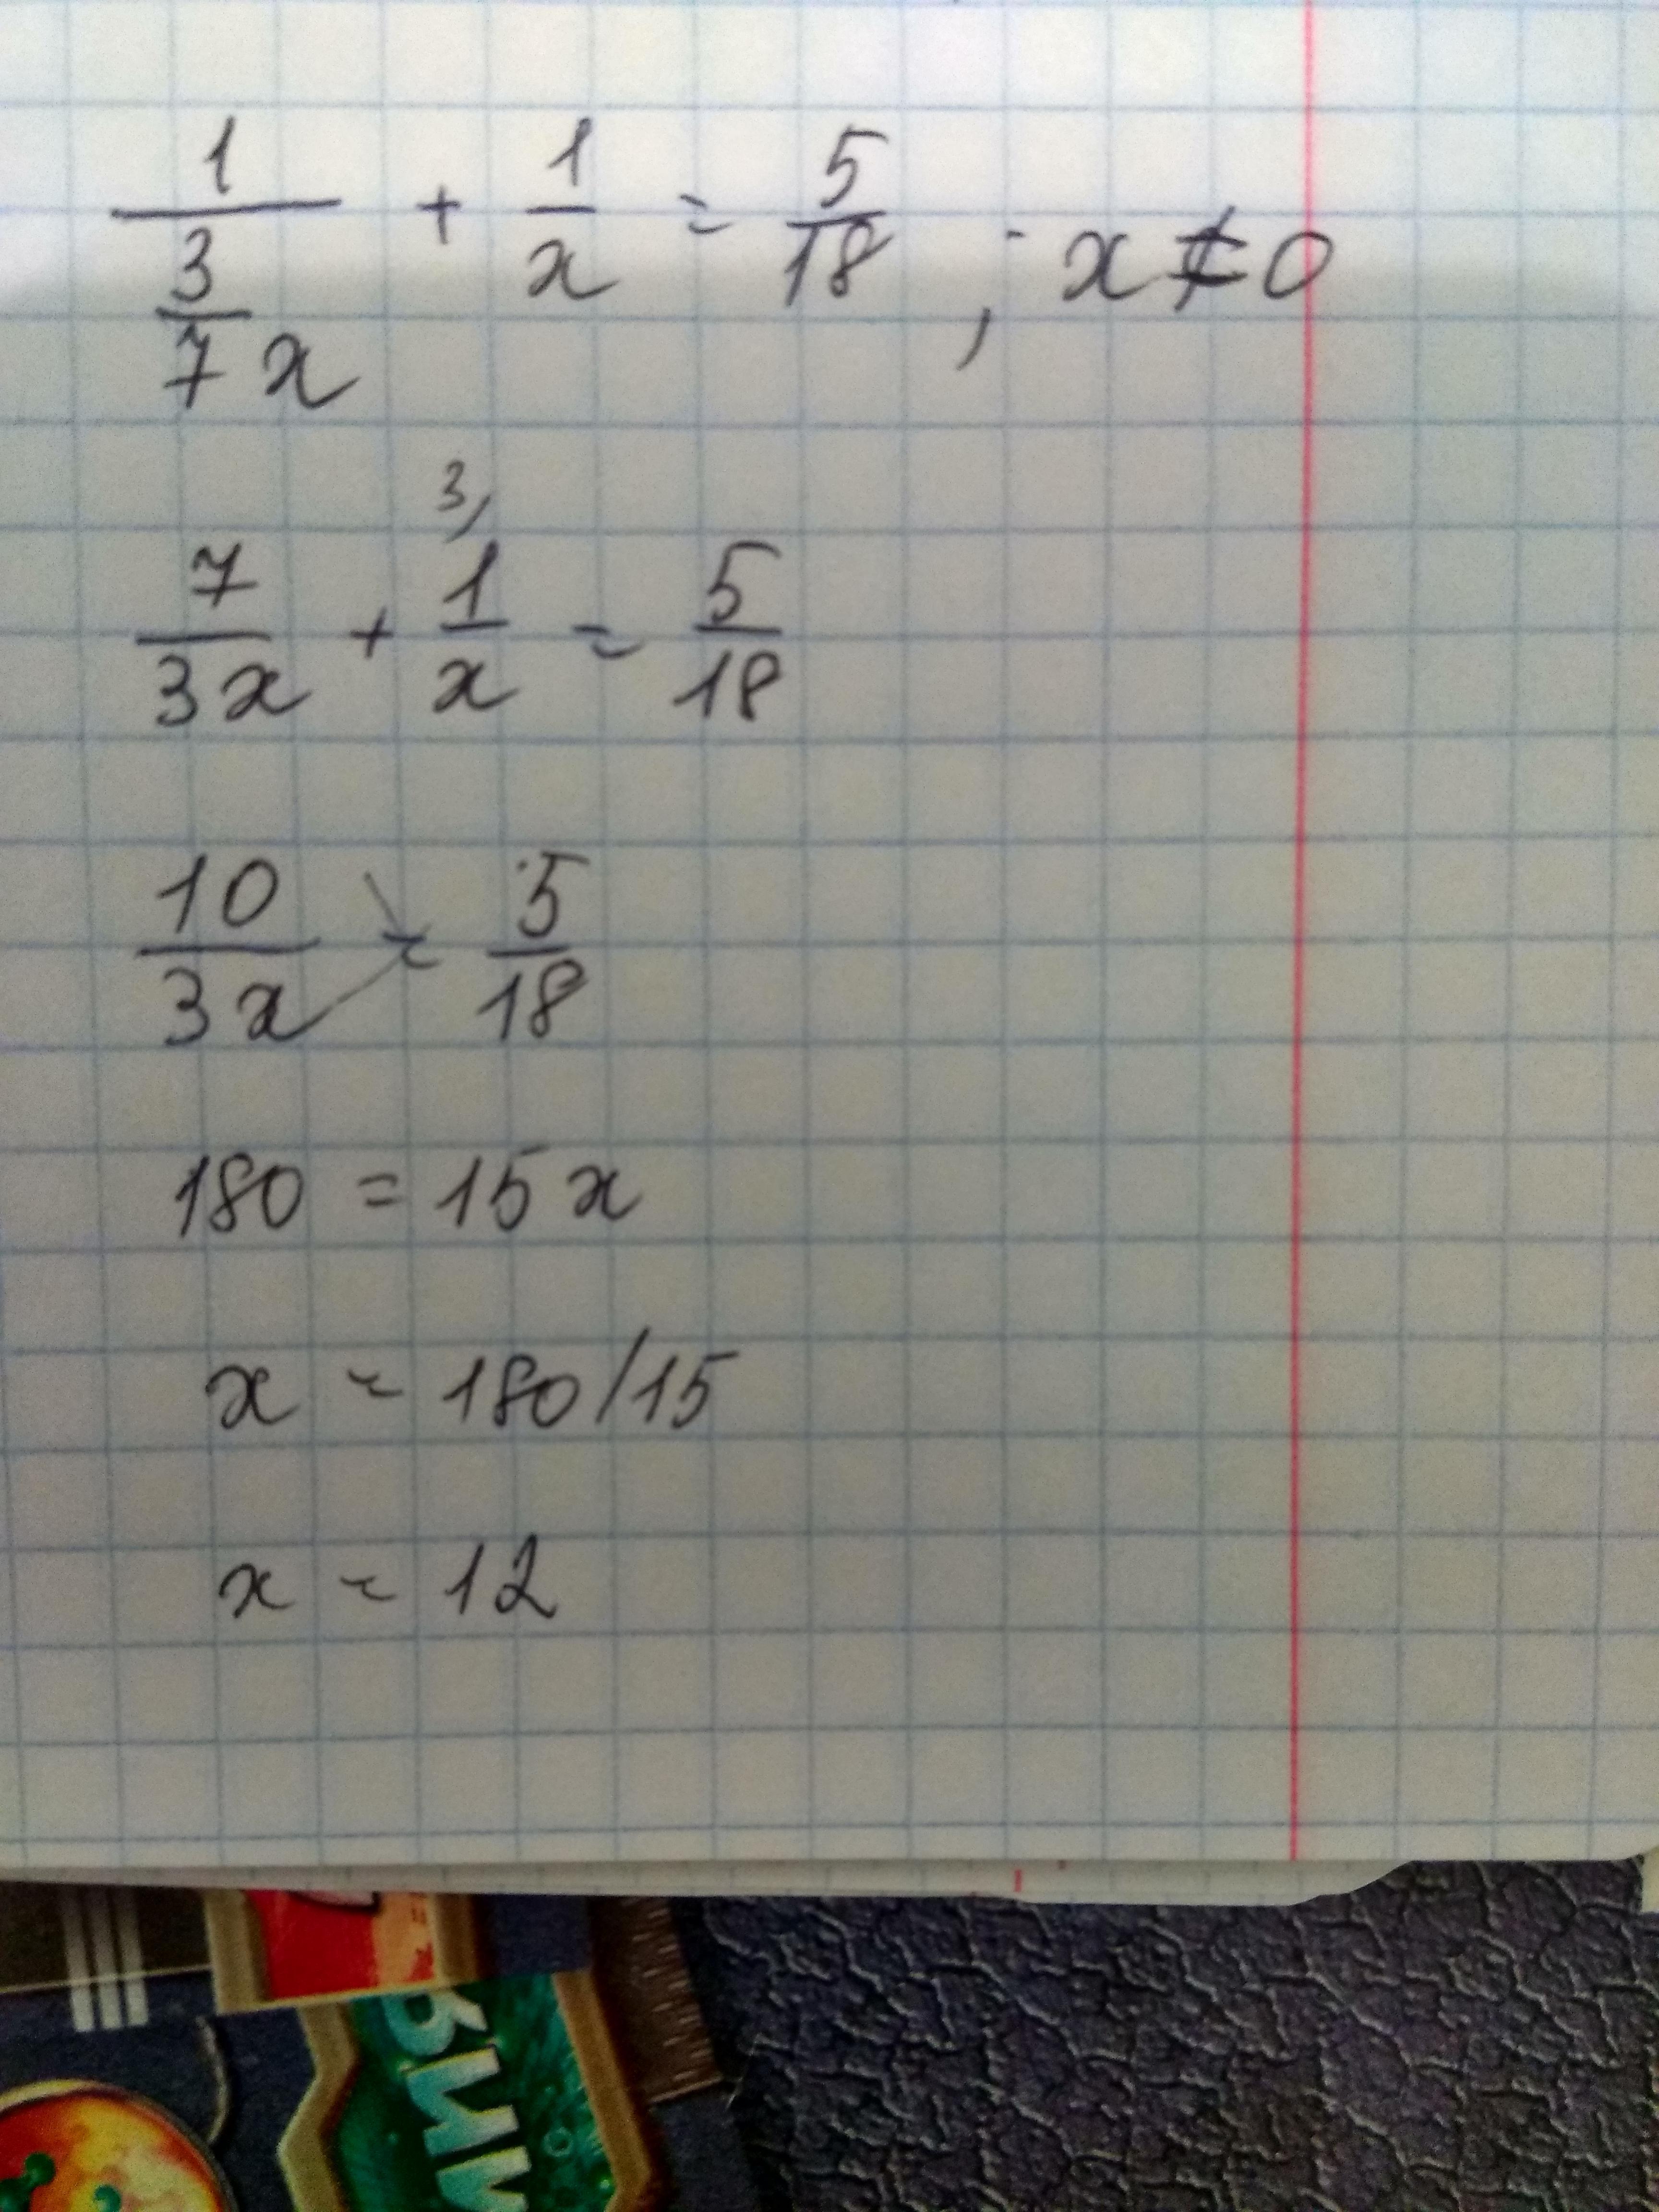 1/(3/7 x) + 1/x = 5/18 ; x ≠ 0
3)
7/3x + 1/x = 5/18
10/3x = 5/18
180 = 15x
x = 180/15
x = 12